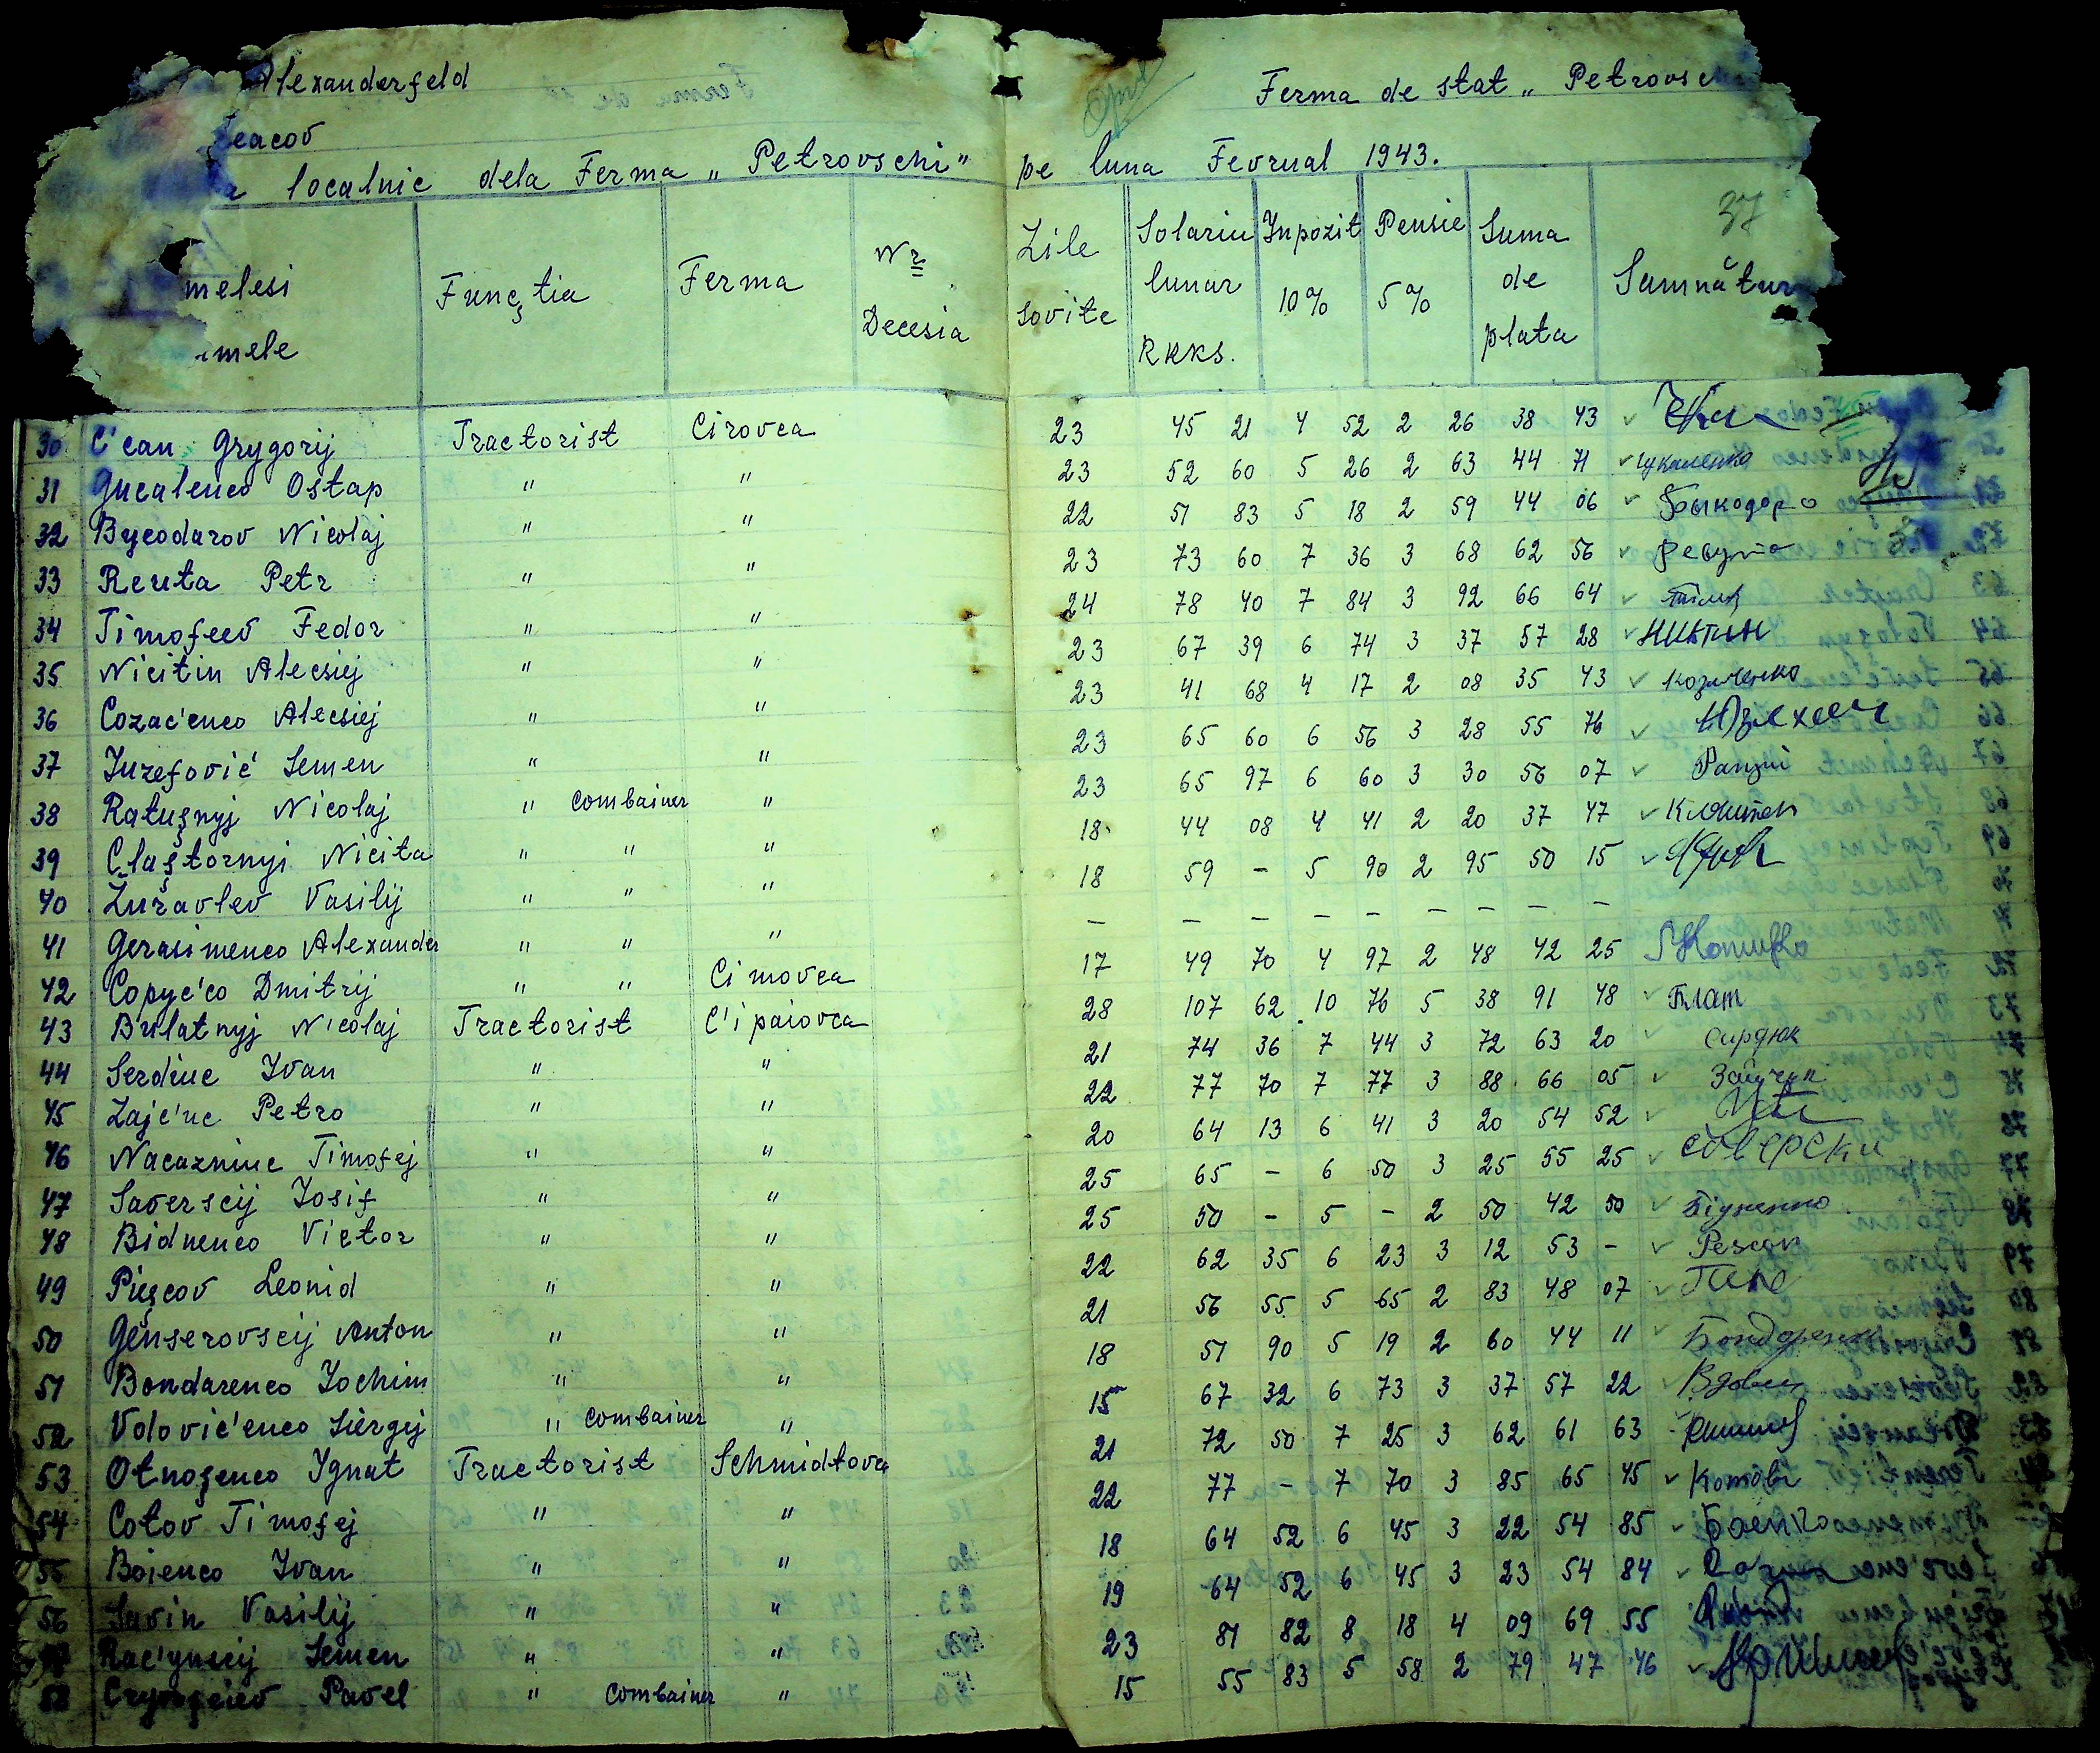 Alexanderfeld
Ferma de stat „ Petrovs
eacov
localnic dela Ferma „ Petrovschi" pe luna Fevrual 1943.
37
melesi
mele
Funcția
Ferma
Nr
Decesia
Zile
sovite
Solariu
lunar
RKKS.
Inpozit
10%
Pensie
5%
Suma
de
plata
Samnătur
30 C'can Grygorij Tractorist Cirovca 23 45 21 4 52 2 26 38 43
31 Gucalenco Ostap " " 23 52 60 5 26 2 63 44 71 Цукаленко
32 Bycodarov Nicolaj " " 22 51 83 5 18 2 59 44 06 Быкодоро
33 Reuta Petr " " 23 73 60 7 36 3 68 62 56 Ревута
34 Timofeev Fedor " " 24 78 40 7 84 3 92 66 64
35 Nicitin Alecsiej " " 23 67 39 6 74 3 37 57 28 Никтин
36 Cozac'enco Alecsiej " " 23 41 68 4 17 2 08 35 43 Козаченко
37 Juzefovic' Semen " " 23 65 60 6 56 3 28 55 76
38 Ratușnyj Nicolaj " combainer " 23 65 97 6 60 3 30 56 07
39 Claștornyj Nicita " " " 18 44 08 4 41 2 20 37 47
40 Zuravlev Vasilij " " " 18 59 - 5 90 2 95 50 15
41 Gerasimenco Alexander " " " - - - - - - - -
42 Copyc'co Dmitrij " " Cimovca 17 49 70 4 97 2 48 42 25
43 Bulatnyj Nicolaj Tractorist C'ipaiovca 28 107 62 10 76 5 38 91 48 Блат
44 Serdiuc Ivan " " 21 74 36 7 44 3 72 63 20 Сирдюк
45 Zajc'uc Petro " " 22 77 70 7 77 3 88 66 05 Зайчук
46 Nacazniuc Timofej " " 20 64 13 6 41 3 20 54 52
47 Saverscij Josif " " 25 65 - 6 50 3 25 55 25 Саверски
48 Bidnenco Victor " " 25 50 - 5 - 2 50 42 50 Бідненко
49 Pieșcov Leonid " " 22 62 35 6 23 3 12 53 -
50 Genserovscij Anton " " 21 56 55 5 65 2 83 48 07
51 Bondarenco Jochim " " 18 51 90 5 19 2 60 44 11 Бондаренко
52 Volovic'enco Siergej " combainer " 15 67 32 6 73 3 37 57 22
53 Otnoșenco Ygnat Tractorist Schmidtova 21 72 50 7 25 3 62 61 63
54 Cotov Timofej " " 22 77 - 7 70 3 85 65 45 Котовъ
55 Boienco Ivan " " 18 64 52 6 45 3 22 54 85 Боенко
56 Savin Vasilij " " 19 64 52 6 45 3 23 54 84
57 Rac'ynscij Semen " " 23 81 82 8 18 4 09 69 55
58 Pavel " combainer " 15 55 83 5 58 2 79 47 46